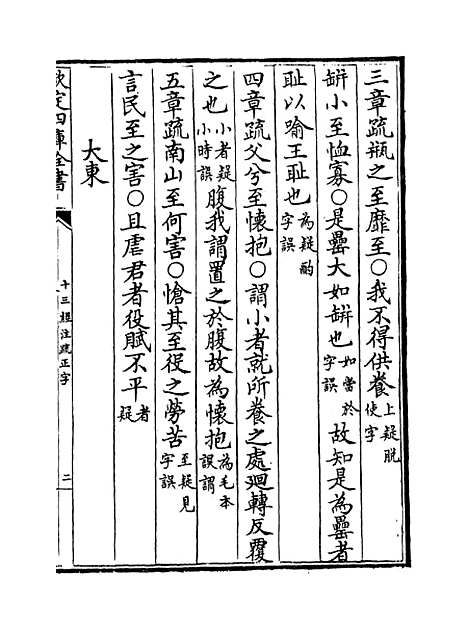 三章疏瓶之至靡至○我不得供養上疑脱使字
缾小至恤寡○是罍大如缾也如當於字誤故知是為罍者
耻以喻王耻也為疑酌字誤
四章疏父兮至懷抱○謂小者就所養之處迴轉反覆
之也小者疑小時誤腹我謂置之於腹故為懷抱為毛本誤謂
五章疏南山至何害○愴其至役之勞苦至疑見字誤
言民至之害○且虐君者役賦不平者疑
大東
欽定四庫全書
十三經注疏正字
二